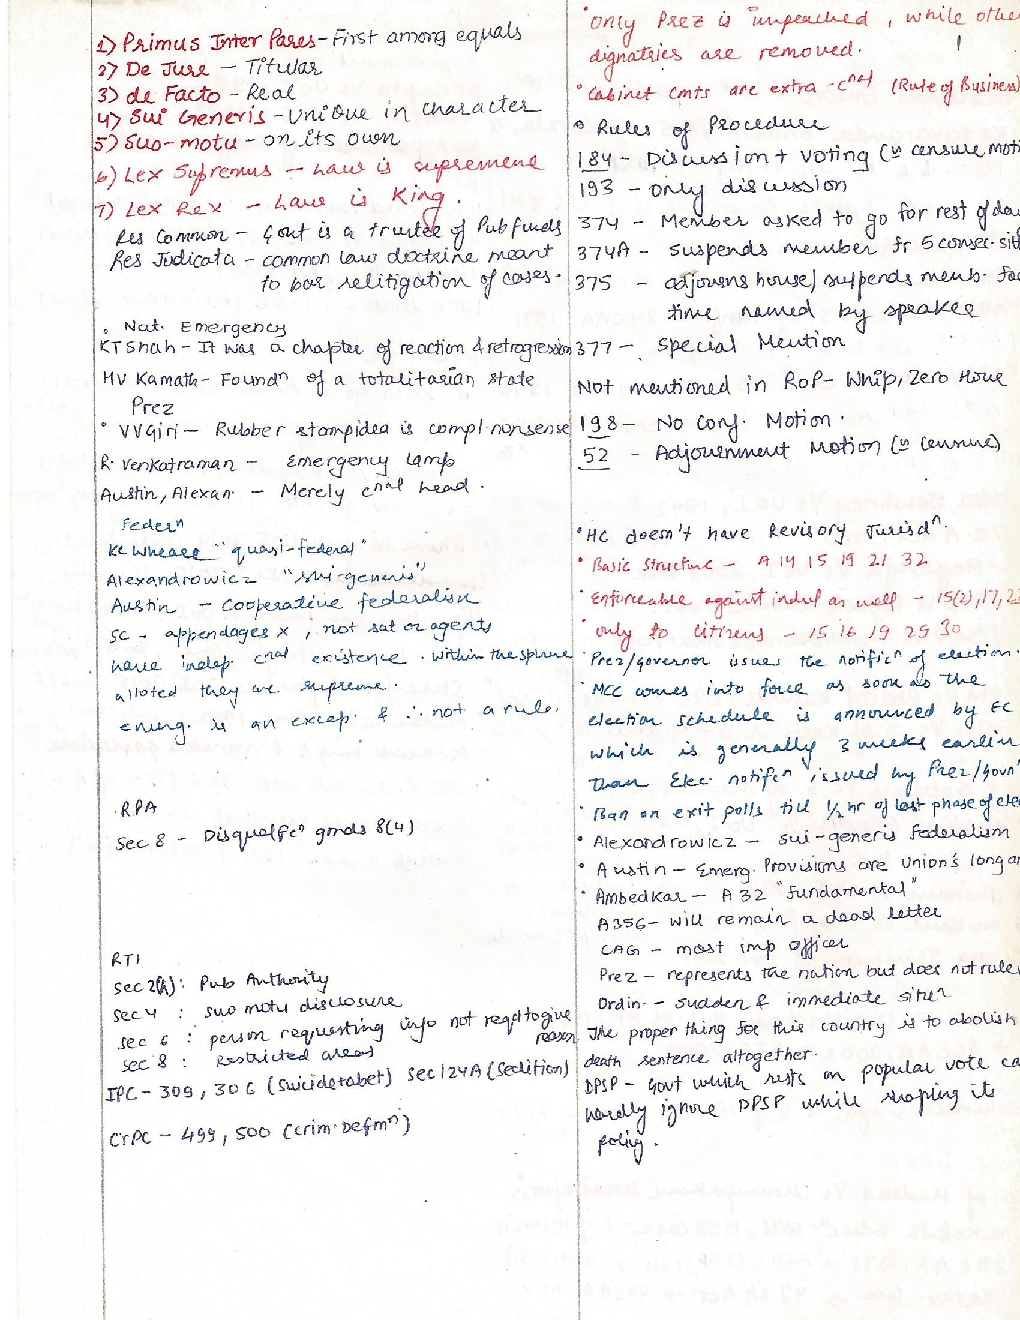 1) Primus Inter Pares - First among equals
2) De Jure - Titular
3) de Facto - Real
4) Sui Generis - Unique in character
5) Suo-motu - on its own
6) Lex Supremus - Law is supreme
7) Lex Rex - Law is King.
Res Common - Govt is a trustee of Pub funds
Res Judicata - common law doctrine meant
to bar relitigation of cases.
. Nat. Emergency
KT Shah - It was a chapter of reaction & retrogression
HV Kamath - Foundn of a totalitarian state
Prez
• VV Giri - Rubber stamp idea is compl. nonsense
R. Venkatraman - Emergency lamp
Austin, Alexan. - Merely cnal head.
Federn
KC Wheare "quasi-federal"
Alexandrowicz "suigeneris"
Austin - cooperative federalism
SC - appendages x, not sat or agents
have indep cnal existence. within the sphere
alloted they are supreme.
emrg. is an excep. & ∴ not a rule.
.RPA
Sec 8 - Disqualfcn grnds 8(4)
RTI
Sec 2(h): Pub Authority
Sec 4 : suo motu disclosure
Sec 6 : person requesting info not reqd to give
reason
Sec 8 : Restricted areas
IPC - 309, 306 (suicide & abet) Sec 124A (Sedition)
CrPC - 499, 500 (crim. Defmn)
• Only Prez is impeached, while othe
dignatries are removed.
• Cabinet Cmts are extra-cnal (Rule of Business)
• Rules of Procedure
184 - Discussion + voting ( censure moti
193 - only discussion
374 - Member asked to go for rest of day
374A - Suspends member fr 5 consec. sitt
375 - adjourns house/suspends memb. fo
time named by speaker
377 - Special Mention
Not mentioned in RoP - Whip, Zero Hour
198 - No Conf. Motion.
52 - Adjournment Motion ( censure)
• HC doesn't have Revisory Jurisdn.
• Basic Structure - A 14 15 19 21 32
• Enforceable against indvl as well - 15(2), 17, 23
• only to citizens - 15 16 19 29 30
• Prez/governor issues the notificn of election.
• MCC comes into force as soon as the
election schedule is announced by EC
which is generally 3 weeks earlier
than Elec. notifcn issued by Prez/Govn
• Ban on exit polls till 1/2 hr of last phase of elec
• Alexandrowicz - sui-generis Federalism
• Austin - Emerg. Provisions are Union's long ar
• Ambedkar - A 32 "fundamental"
A356 - will remain a dead letter
CAG - most imp officer
Prez - represents the nation but does not rule
Ordin. - sudden & immediate sitn
The proper thing for this country is to abolish
death sentence altogether.
DPSP - Govt which rests on popular vote ca
hardly ignore DPSP while shaping its
policy.